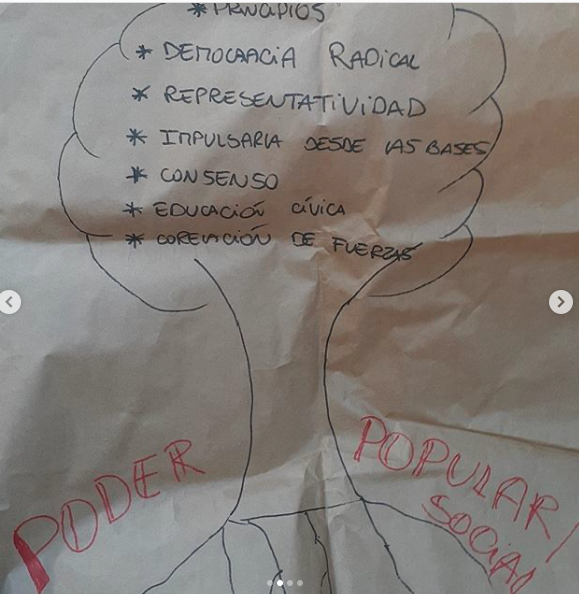 * PRINCIPIOS
* DEMOCRACIA RADICAL
* REPRESENTATIVIDAD
* IMPULSARLA DESDE LAS BASES
* CONSENSO
* EDUCACIÓN CÍVICA
* CORELACIÓN DE FUERZAS
PODER
POPULAR/
SOCIAL